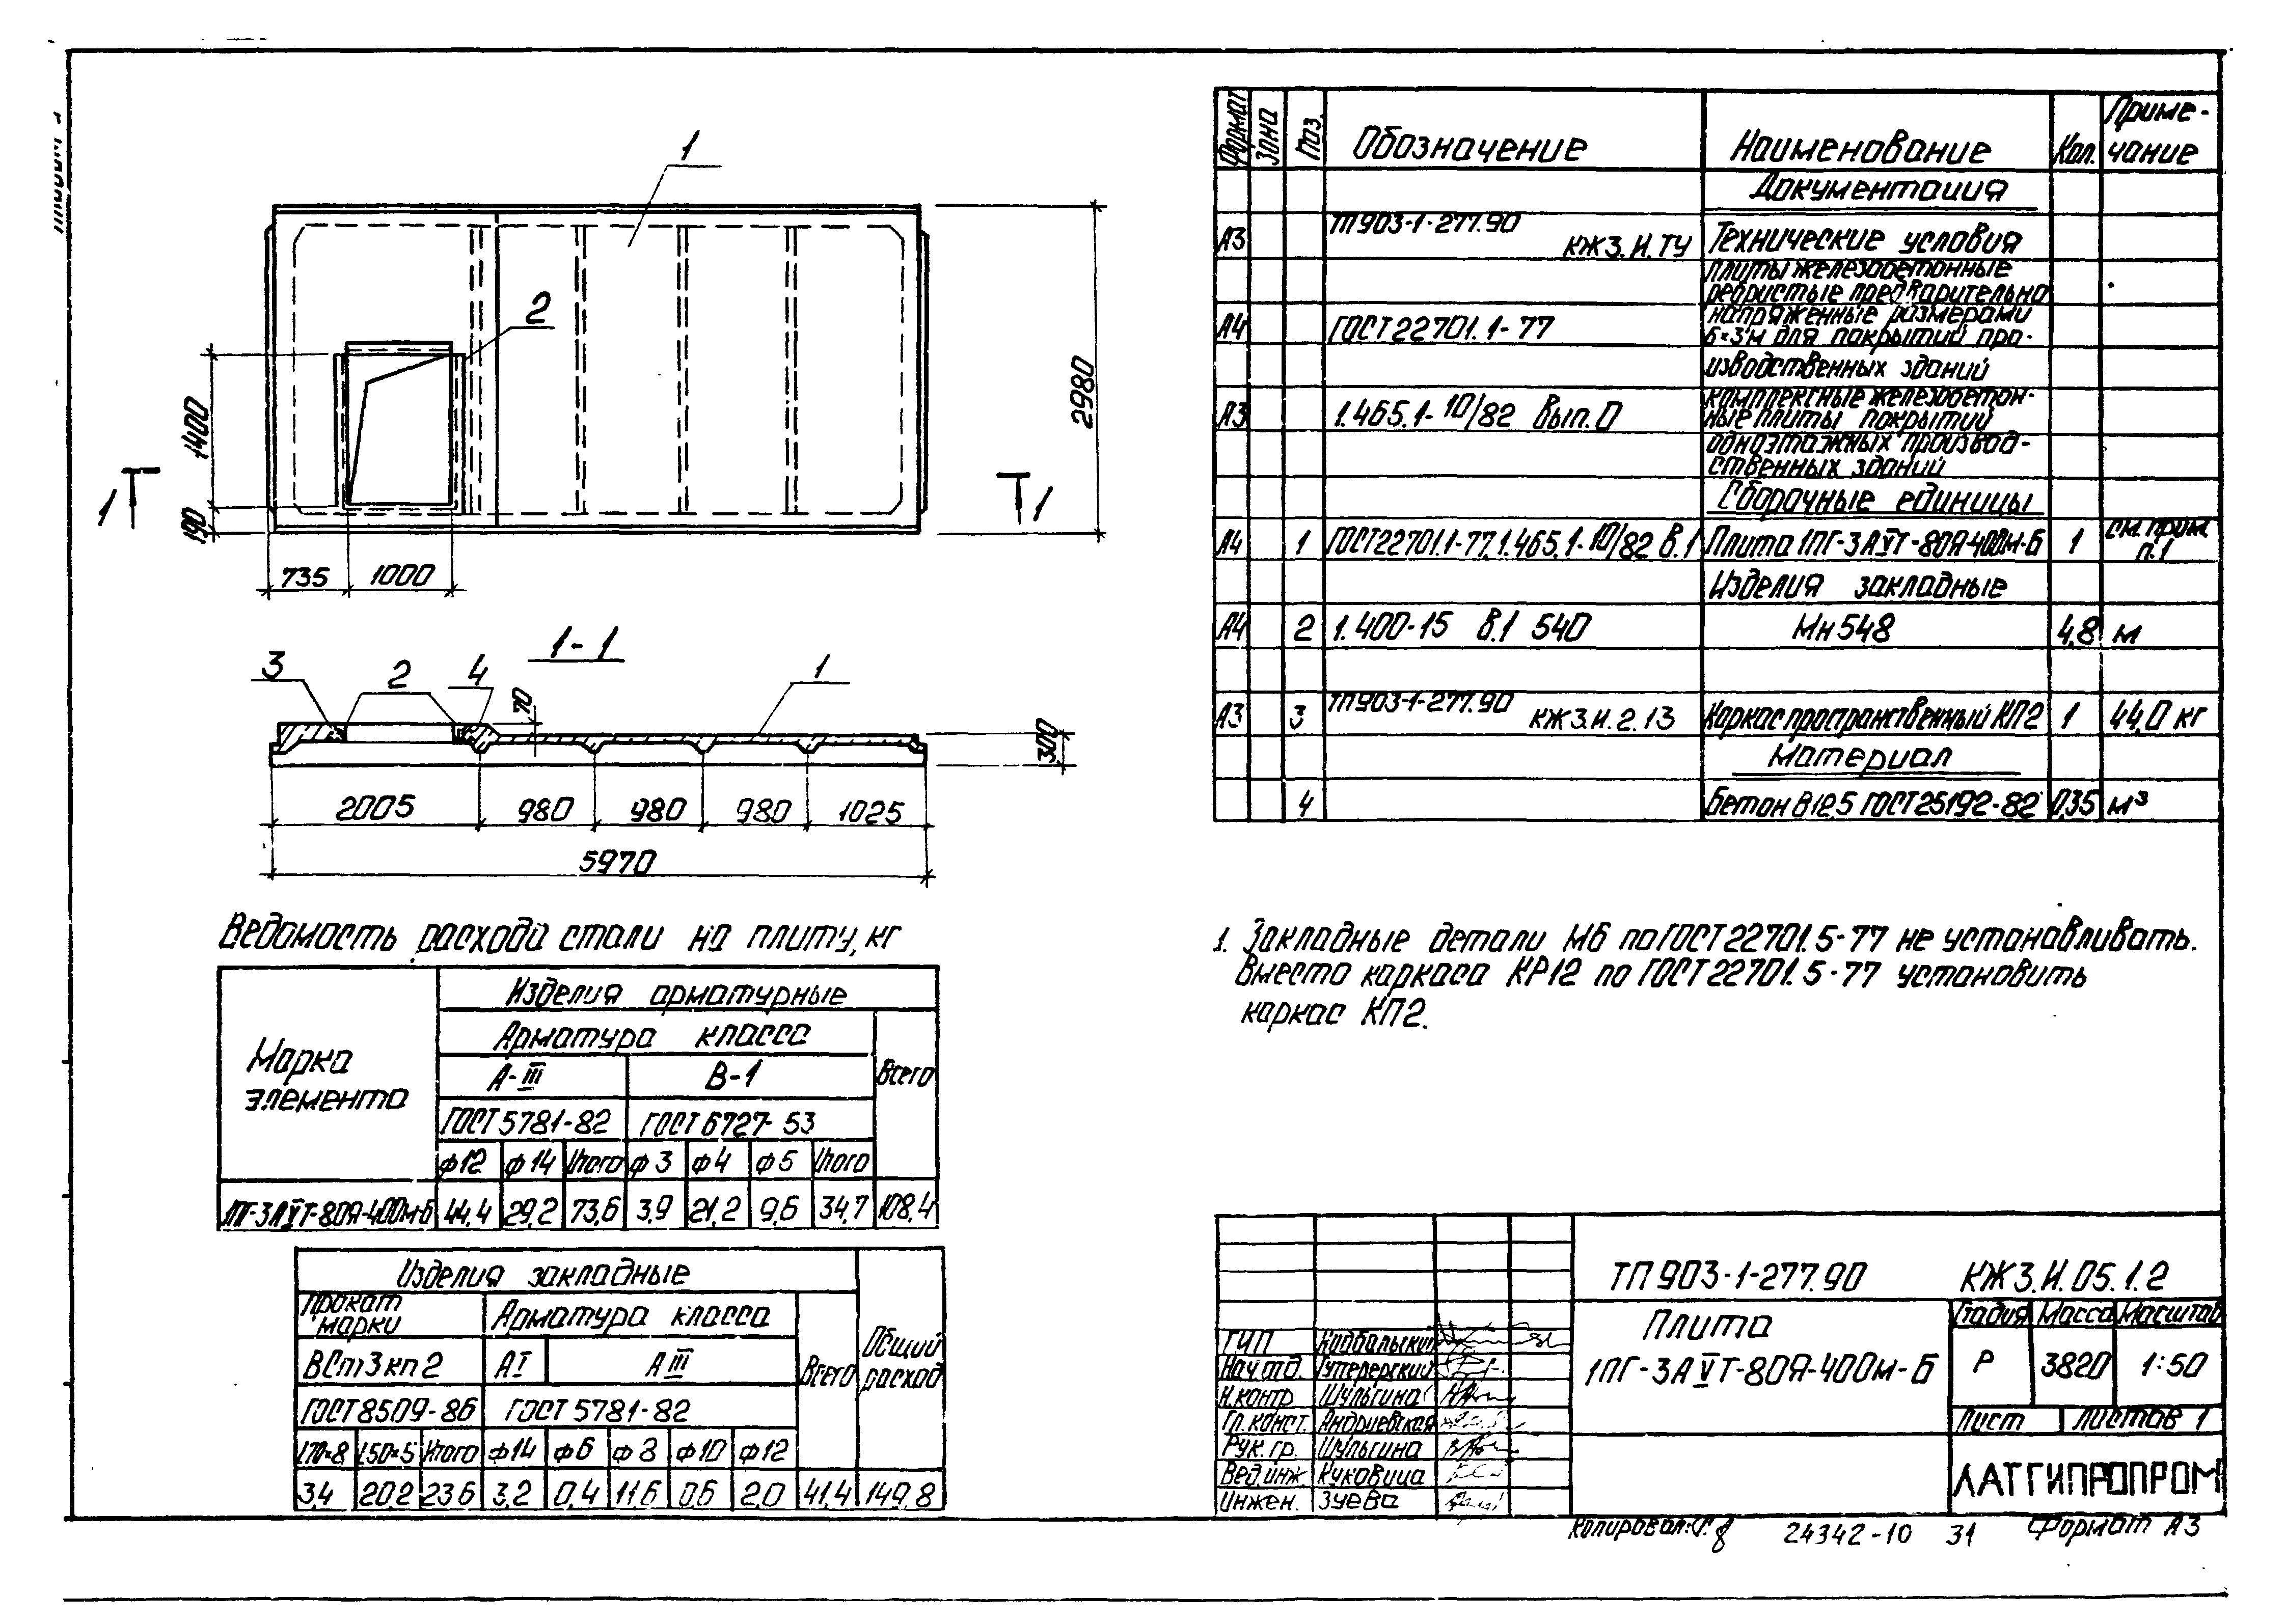 1
2
1400
190
735
1000
2980
1
1
1-1
3
2
4
1
70
300
2005
980
980
980
1025
5970
Ведомость расхода стали на плиту, кг
Марка элемента
Изделия арматурные
Арматура класса
Всего
А-III
В-1
ГОСТ 5781-82
ГОСТ 6727-53
ф12 ф14 Итого ф3 ф4 ф5 Итого
1ПГ-3АVТ-80Я-400м-Б 44,4 29,2 73,6 3,9 21,2 9,6 34,7 108,4
Изделия закладные
Прокат марки
Арматура класса
Всего
Общий расход
ВСт3кп2
АI
АIII
ГОСТ8509-86
ГОСТ 5781-82
L70×8 L50×5 Итого ф14 ф6 ф8 ф10 ф12
3,4 20,2 23,6 3,2 0,4 11,6 0,6 2,0 41,4 149,8
Формат Зона Поз. Обозначение Наименование Кол. Приме-чание
Документация
А3 ТП903-1-277.90 КЖ3.И.ТУ Технические условия
плиты железобетонные
ребристые предварительно
А4 ГОСТ22701.1-77 напряженные размерами
6×3м для покрытий про-
изводственных зданий
А3 1.465.1-10/82 Вып.0 комплексные железобетон-
ные плиты покрытий
одноэтажных производ-
ственных зданий
Сборочные единицы
А4 1 ГОСТ22701.1-77,1.465.1-10/82 В.1 Плита 1ПГ-3АVТ-80Я-400м-Б 1 см. прим. п.1
Изделия закладные
А4 2 1.400-15 В.1 540 Мн548 4,8 м
А3 3 ТП903-1-277.90 КЖ3.И.2.13 Каркас пространственный КП2 1 44,0 кг
Материал
4 Бетон В12,5 ГОСТ25192-82 0,35 м³
1. Закладные детали М6 по ГОСТ22701.5-77 не устанавливать.
Вместо каркаса КР12 по ГОСТ22701.5-77 установить
каркас КП2.
ТП 903-1-277.90 КЖ3.И.05.1.2
Плита
1ПГ-3АVТ-80Я-400м-Б
Стадия Масса Масштаб
Р 3820 1:50
Лист Листов 1
ЛАТГИПРОПРОМ
ГИП
Нач.отд.
Н.контр Шульгина
Гл.конст. Андриевская
Рук.гр. Шульгина
Вед.инж Куковица
Инжен. Зуева
Копировал:
24342-10 31
Формат А3